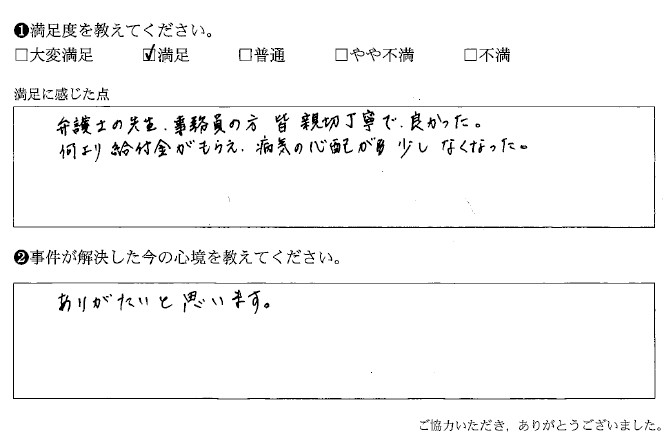 ❶満足度を教えてください。
□大変満足 ☑満足 □普通 □やや不満 □不満
満足に感じた点
弁護士の先生、事務員の方 皆 親切丁寧で、良かった。
何より 給付金がもらえ、病気の心配が 少し なくなった。
❷事件が解決した今の心境を教えてください。
ありがたいと思います。
ご協力いただき、ありがとうございました。